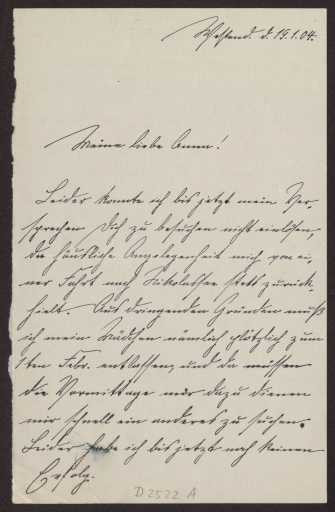 Westend. d. 19.1.04.
Meine liebe Anna!
Leider konnte ich bis jetzt mein Ver-
sprechen Dich zu besuchen nicht einlösen,
da häusliche Angelegenheit mich von ei-
ner Fahrt nach Nikolassee stets zurück-
hielt. Aus dringenden Gründen muß
ich mein Mädchen nämlich plötzlich zum
1ten Febr. entlassen, und da müssen
die Vormittage mir dazu dienen
mir schnell ein anderes zu suchen.
Leider habe ich bis jetzt noch keinen
Erfolg.
D2522 A